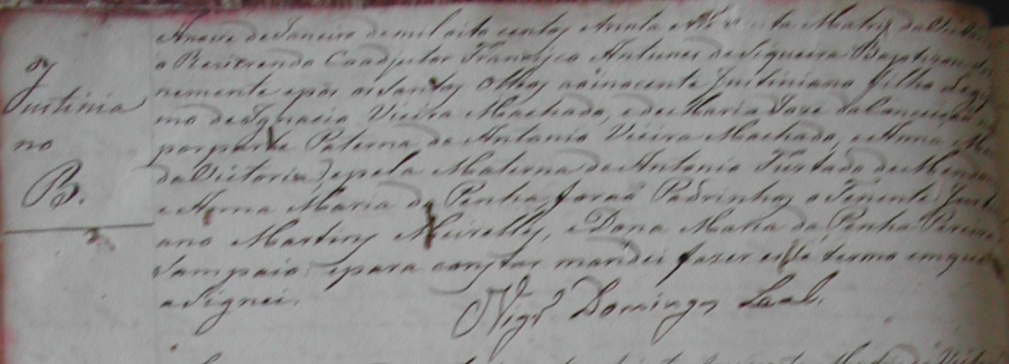 Justinia
no
B.
Anove de Janeiro de mil oito centos trinta e nesta Matriz da
o Reverendo Coadjutor Francisco Antunes de Siqueira Baptizou
nemente e pôs os Santos Olhos ao innocente Justiniano filho Legi
mo de Ignacio Vieira Machado, e de Maria Joze da Conceição
por parte Paterna de Antonio Vieira Machado, e Anna Ma
da Victoria, e pela Materna de Antonio Furtado de Mendon
e Anna Maria da Penha forão Padrinhos o Tenente Justi
ano Martins Meirelles, e Dona Maria da Penha Pereira
Sampaio: e para constar mandei fazer este termo em que
aSignei.
Vigr.º Domingos Leal.